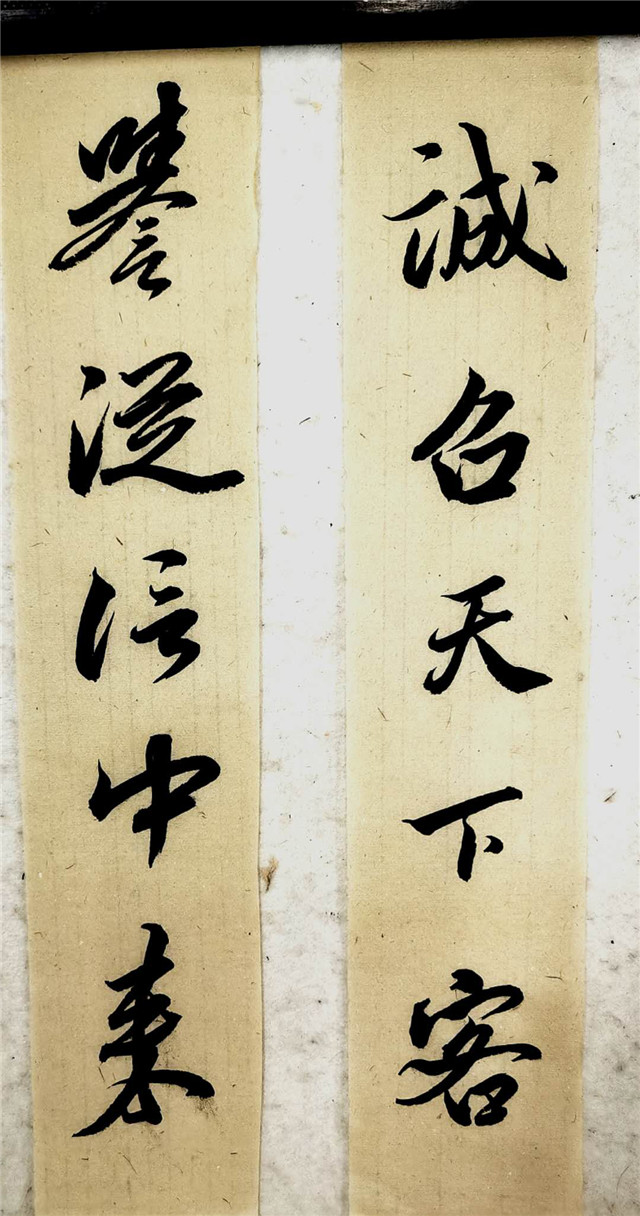 誠召天下客
譽從信中來